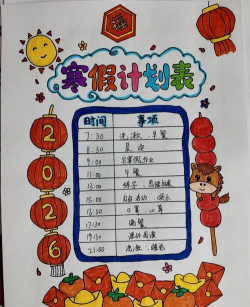 福
寒假计划表
2026
时间 事项
7:30 洗漱、早餐
8:30 晨读
9:00 写寒假作业
11:00 午餐
13:00
15:00 自由活动、娱乐
16:30
17:30 晚餐
19:30 课外阅读
21:00 洗漱、睡觉